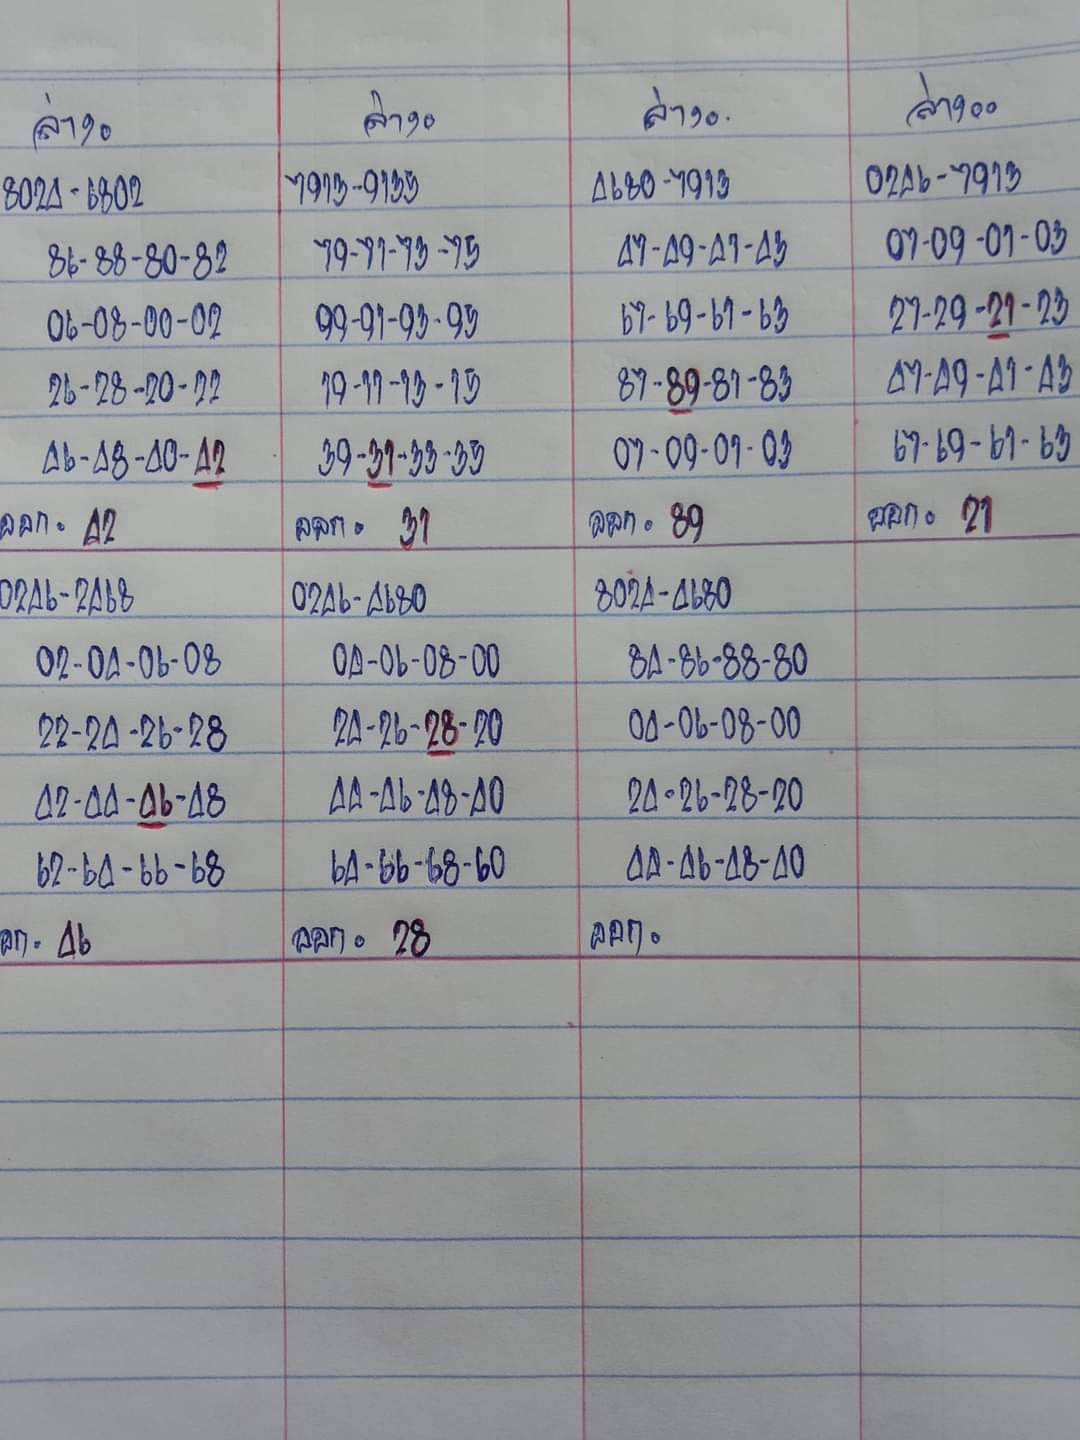 ล่าง. ล่าง. ล่าง. ล่าง..
8024-6802 7913-9135 4680-7913 0246-7913
86-88-80-82 79-71-73-75 47-49-41-43 07-09-01-03
06-08-00-02 99-91-93-95 67-69-61-63 27-29-21-23
26-28-20-22 19-11-13-15 87-89-81-83 47-49-41-43
46-48-40-42 39-31-33-35 07-09-01-03 67-69-61-63
ออก. 42 ออก. 31 ออก. 89 ออก. 21
0246-2468 0246-4680 8024-4680
02-04-06-08 04-06-08-00 84-86-88-80
22-24-26-28 24-26-28-20 04-06-08-00
42-44-46-48 44-46-48-40 24-26-28-20
62-64-66-68 64-66-68-60 44-46-48-40
อก. 46 ออก. 28 ออก.